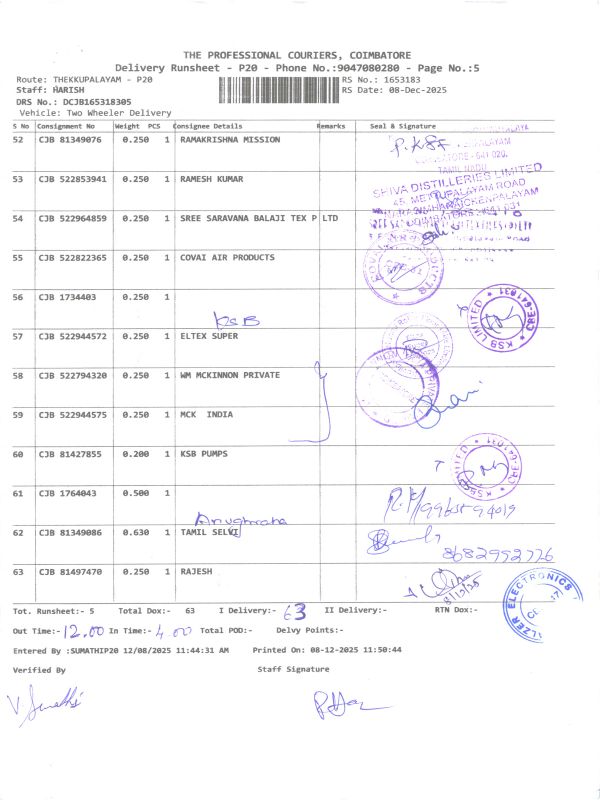 THE PROFESSIONAL COURIERS, COIMBATORE
Delivery Runsheet - P20 - Phone No.:9047080280 - Page No.:5
Route: THEKKUPALAYAM - P20 RS No.: 1653183
Staff: HARISH RS Date: 08-Dec-2025
DRS No.: DCJB165318305
Vehicle: Two Wheeler Delivery
S No Consignment No Weight PCS Consignee Details Remarks Seal & Signature
52 CJB 81349076 0.250 1 RAMAKRISHNA MISSION
TAMIL NADU
53 CJB 522853941 0.250 1 RAMESH KUMAR
SHIVA DISTILLERIES LIMITED
45, METTUPALAYAM ROAD
54 CJB 522964859 0.250 1 SREE SARAVANA BALAJI TEX P LTD
55 CJB 522822365 0.250 1 COVAI AIR PRODUCTS
COVAI
56 CJB 1734403 0.250 1
KSB
KSB LIMITED ★ CBE-641031
57 CJB 522944572 0.250 1 ELTEX SUPER
58 CJB 522794320 0.250 1 WM MCKINNON PRIVATE
59 CJB 522944575 0.250 1 MCK INDIA
60 CJB 81427855 0.200 1 KSB PUMPS
KSB LIMITED ★ CBE-641031
61 CJB 1764043 0.500 1
Anugraha
62 CJB 81349086 0.630 1 TAMIL SELVI
8682952726
63 CJB 81497470 0.250 1 RAJESH
8/12/25
ELECTRONICS
Tot. Runsheet:- 5 Total Dox:- 63 I Delivery:- 63 II Delivery:- RTN Dox:-
Out Time:- 12.00 In Time:- 4.00 Total POD:- Delvy Points:-
Entered By :SUMATHIP20 12/08/2025 11:44:31 AM Printed On: 08-12-2025 11:50:44
Verified By Staff Signature